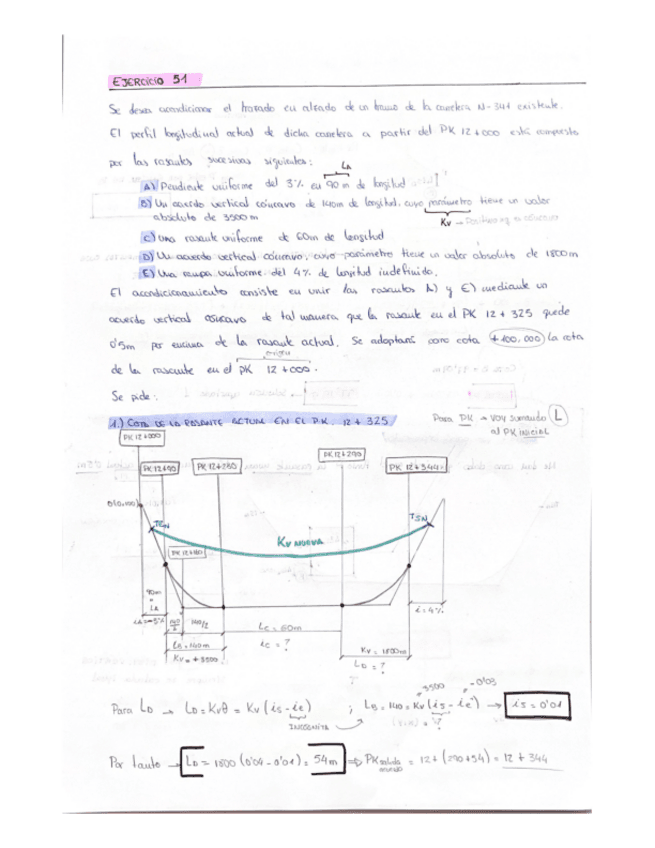 EJERCICIO 51
Se desea acondicionar el trazado en alzado de un tramo de la carretera N-344 existente.
El perfil longitudinal actual de dicha carretera a partir del PK 12+000 está compuesto
por las rasantes sucesivas siguientes:
LA
A) Pendiente uniforme del 3% en 90 m de longitud
B) Un acuerdo vertical cóncavo de 140m de longitud, cuyo parámetro tiene un valor
absoluto de 3500 m
Kv → Positivo
C) Una rasante uniforme de 60m de longitud
D) Un acuerdo vertical cóncavo, cuyo parámetro tiene un valor absoluto de 1800m
E) Una rampa uniforme del 4% de longitud indefinida.
El acondicionamiento consiste en unir las rasantes A) y E) mediante un
acuerdo vertical cóncavo de tal manera que la rasante en el PK 12+325 quede
0'5m por encima de la rasante actual. Se adoptará como cota +100,000 la cota
origen
de la rasante en el PK 12+000.
Se pide:
1.) COTA DE LA RASANTE ACTUAL EN EL P.K. 12+325
Para PK → voy sumando L
al PK inicial
PK 12+000
PK 12+90
PK 12+230
PK 12+290
PK 12+344
TEN
TSN
Kv NUEVA
90m
=
LA
140/2
140/2
iA=-3%
LB=140m
Kv=+3500
LC=60m
iC=?
Kv=1800m
LD=?
i=4%
Para LD → LD=Kvθ = Kv(is-ie) ; LB=140=Kv(is-ie) → is=0'01
3500
-0'03
INCÓGNITA
Por tanto → LD=1800(0'04-0'01)=54m ⇒ PK salida acuerdo = 12+(290+54)=12+344